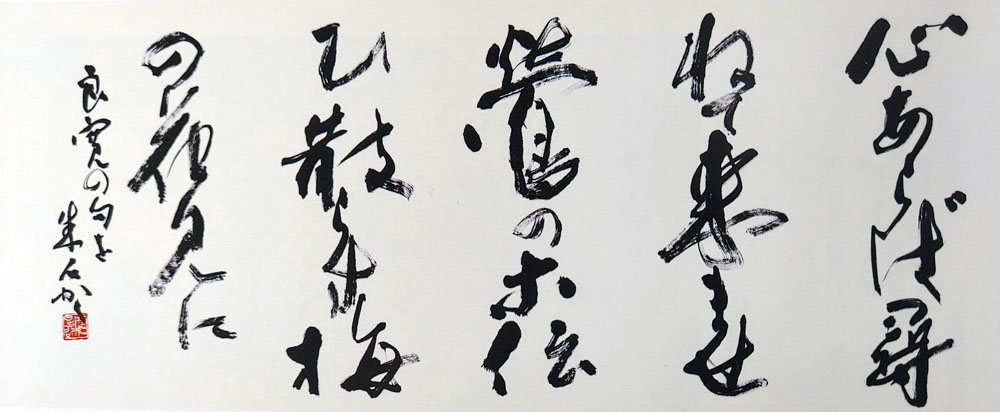 心あらば尋
ねて来ませ
鶯の木伝
ひ散らす梅
の花見に
良寛の句を 朱石かく